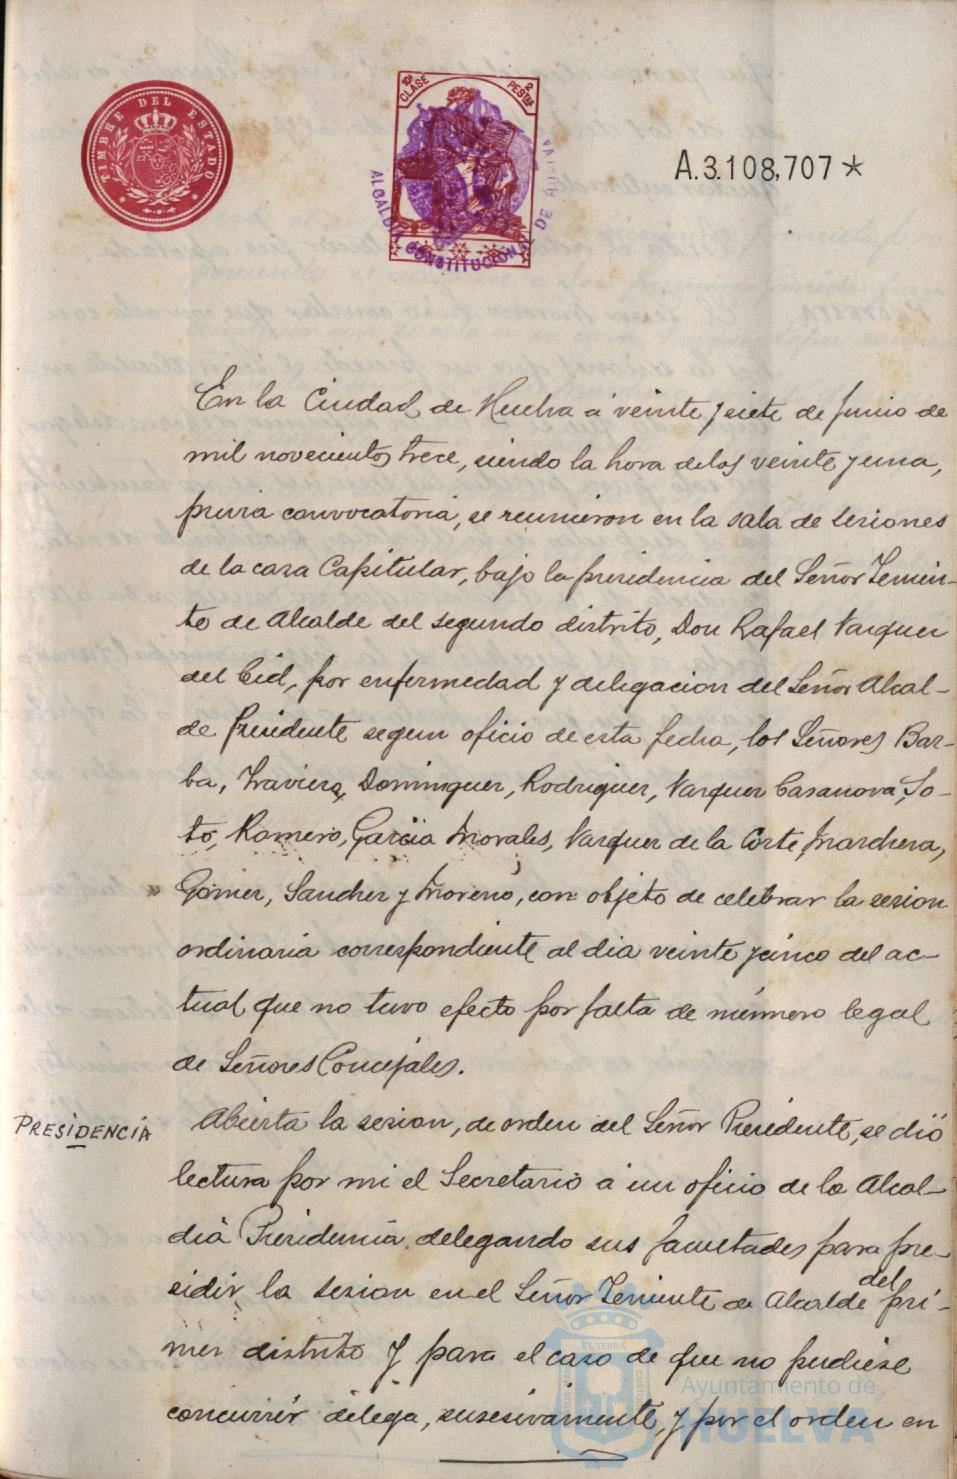 TIMBRE DEL ESTADO
10ª CLASE 2 PESETAS
ALCALDIA CONSTITUCIONAL DE HUELVA
A.3.108,707 *
En la Ciudad de Huelva á veinte y siete de Junio de
mil novecientos trece, siendo la hora de las veinte y una,
previa convocatoria, se reunieron en la sala de sesiones
de la casa Capitular, bajo la presidencia del Señor Tenien-
te de Alcalde del segundo distrito, Don Rafael Vazquez
del Cid, por enfermedad y delegacion del Señor Alcal-
de Presidente segun oficio de esta fecha, los Señores Bar-
ba, Traviesa, Dominguez, Rodriguez, Vazquez Casanova, So-
to, Romero, Garcia Morales, Vazquez de la Corte, Marchena,
Gomez, Sanchez y Moreno, con objeto de celebrar la sesion
ordinaria correspondiente al dia veinte y cinco del ac-
tual que no tuvo efecto por falta de número legal
de Señores Concejales.
PRESIDENCIA Abierta la sesion, de orden del Señor Presidente, se dió
lectura por mi el Secretario á un oficio de la Alcal-
dia Presidencia delegando sus facultades para pre-
sidir la sesion en el Señor Teniente de Alcalde del pri-
mer distrito y para el caso de que no pudiese
concurrir delega, sucesivamente, y por el orden en
Ayuntamiento de
HUELVA